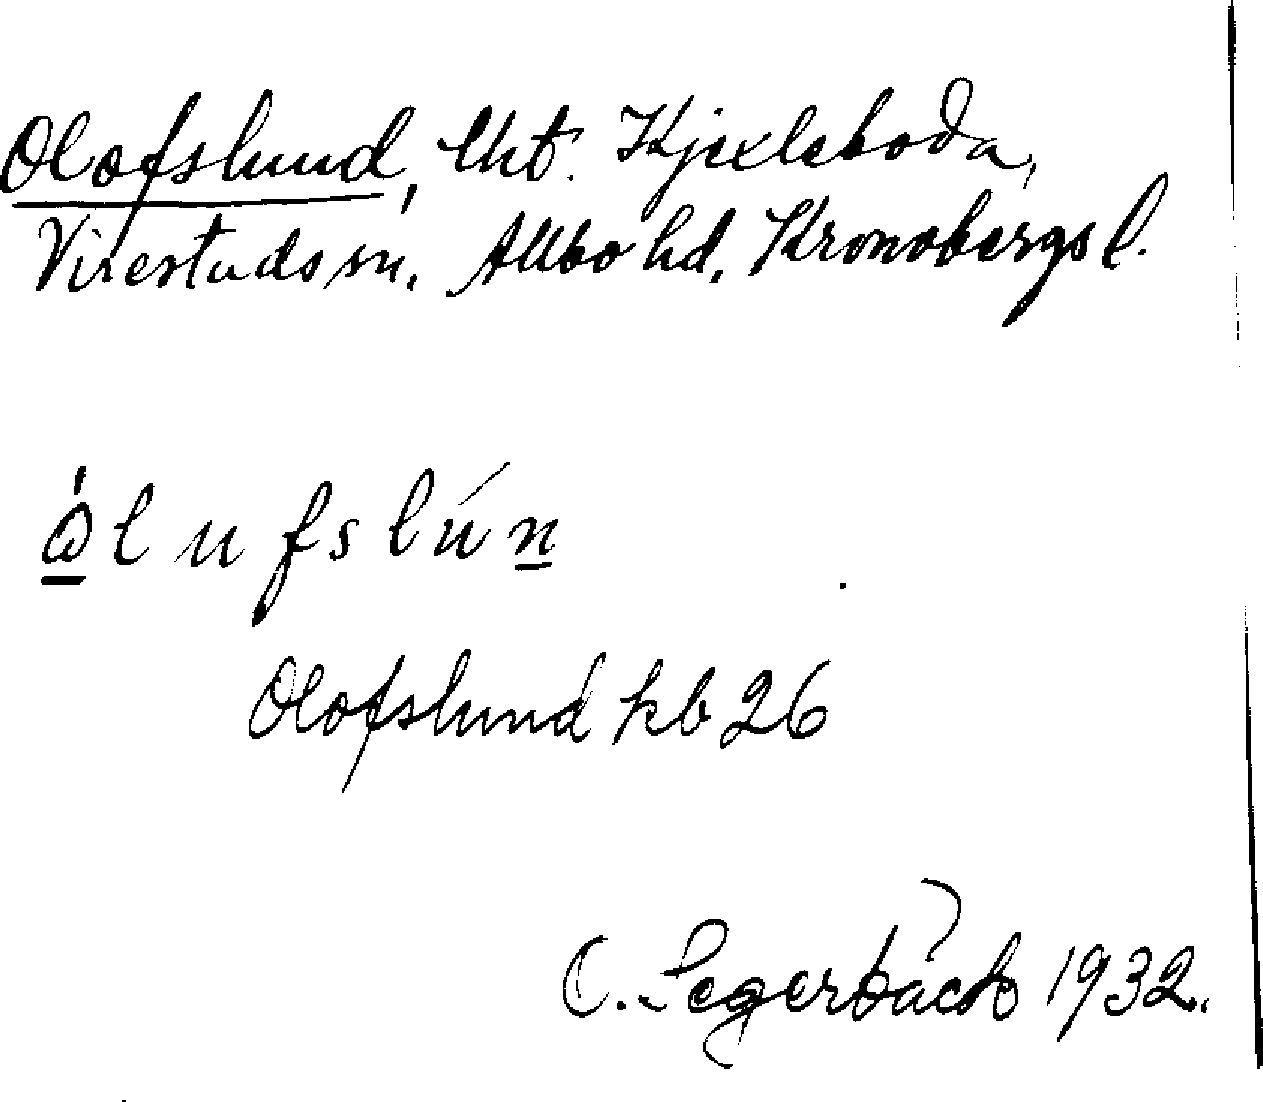 Olofslund, lht. Kjexleboda,
Virestads sn. Allbo hd, Kronobergs l.
ώ̲ l u f s l ú n̲
Olofslund kb 26
C. Segerbäck 1932.